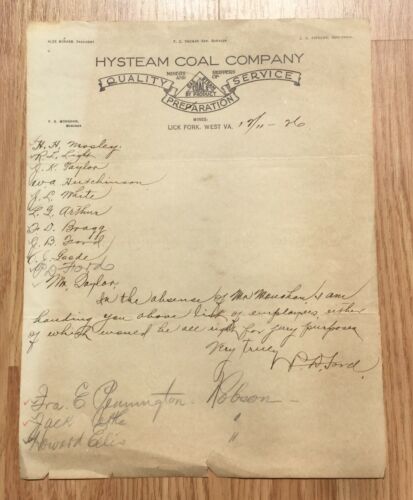 HYSTEAM COAL COMPANY
MINERS AND
SHIPPERS OF
QUALITY
SERVICE
COAL
BY PRODUCT
PREPARATION
MINES:
LICK FORK, WEST VA.
12/11-26
MANAGER
H. H. Mosley
R. L. Light
J. K. Taylor
Ava Hutchinson
J. L. White
L. G. Arthur
H D. Bragg
J B Ford
Goode
P D Ford
Mr. Taylor,
In the absense of Mr Monahan I am
handing you above list of employees, either
of which would be all right for jury purposes
Very truly
P D Ford.
Ira. E Pennington - Robson
Jack "
Howard Ellis "